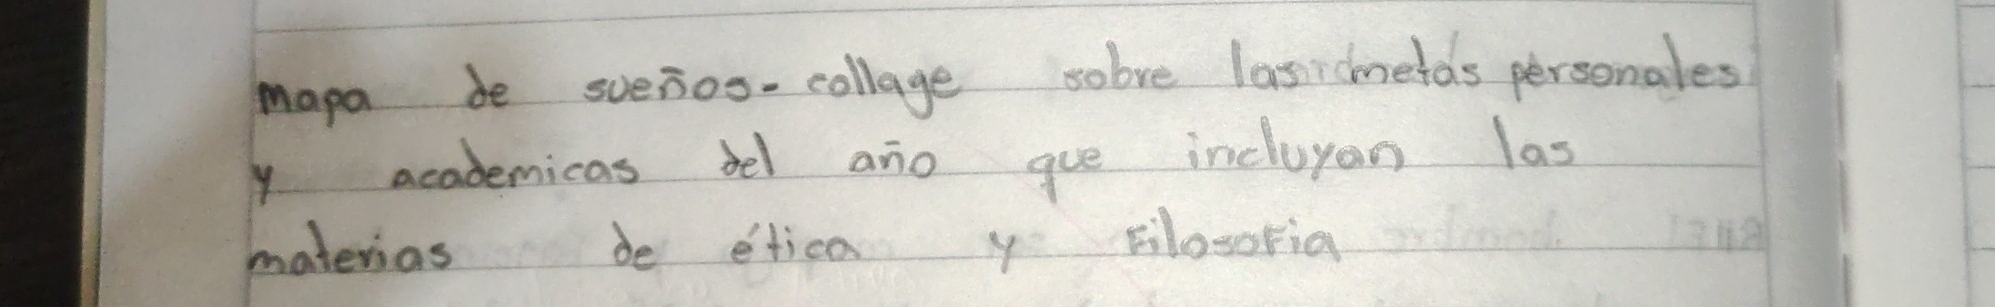 mapa de sueños-collage sobre las metas personales
y academicas del año que incluyan las
materias de ética y Filosofia